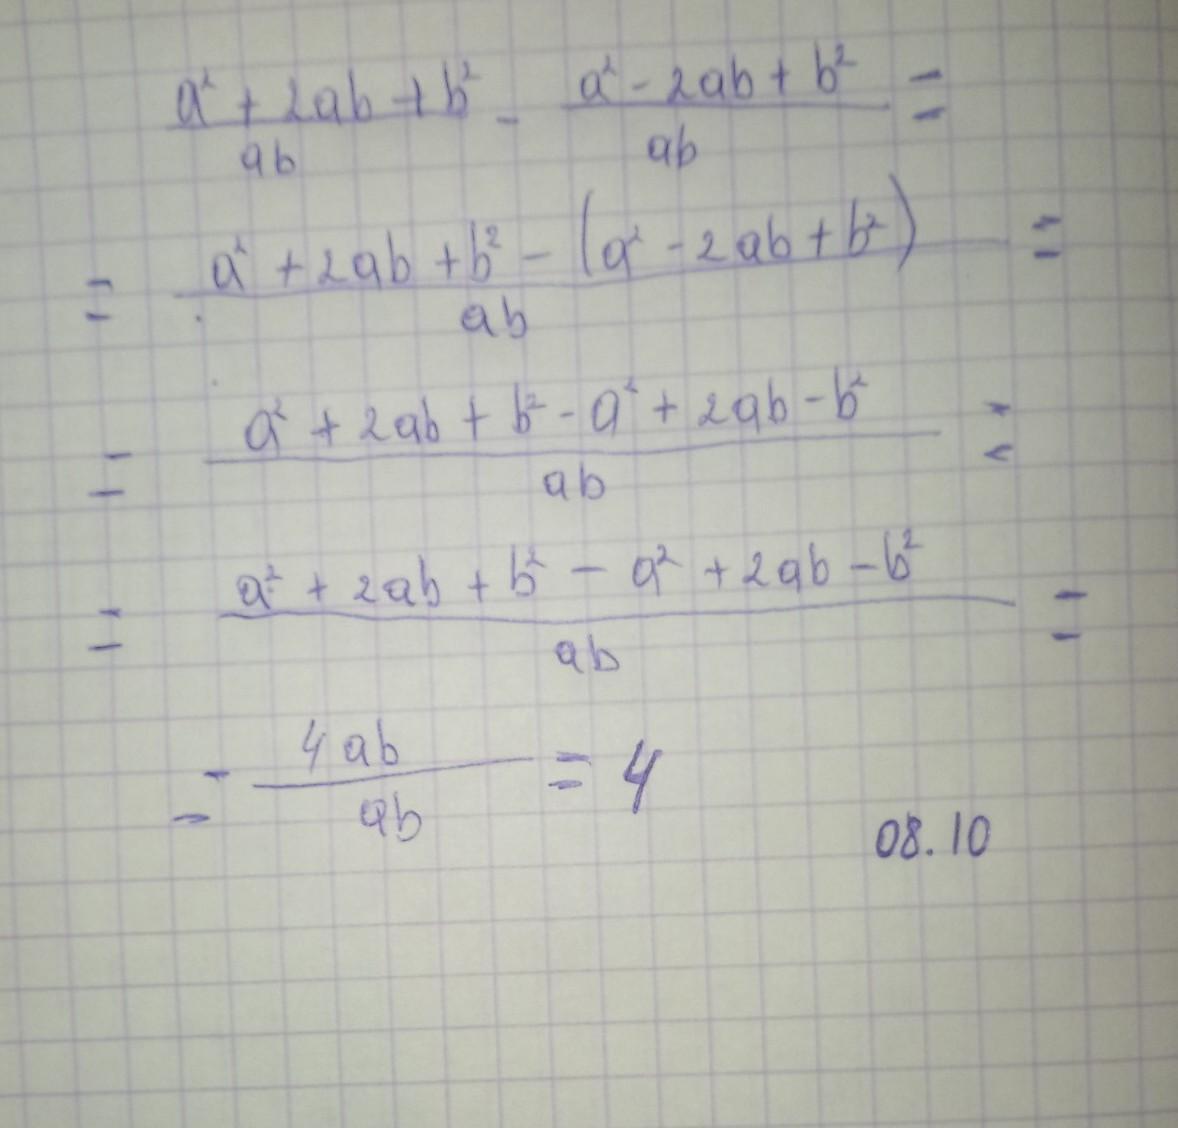 a² + 2ab + b² / ab - a² - 2ab + b² / ab =
= a² + 2ab + b² - (a² - 2ab + b²) / ab =
= a² + 2ab + b² - a² + 2ab - b² / ab =
= a² + 2ab + b² - a² + 2ab - b² / ab =
= 4ab / ab = 4
08.10